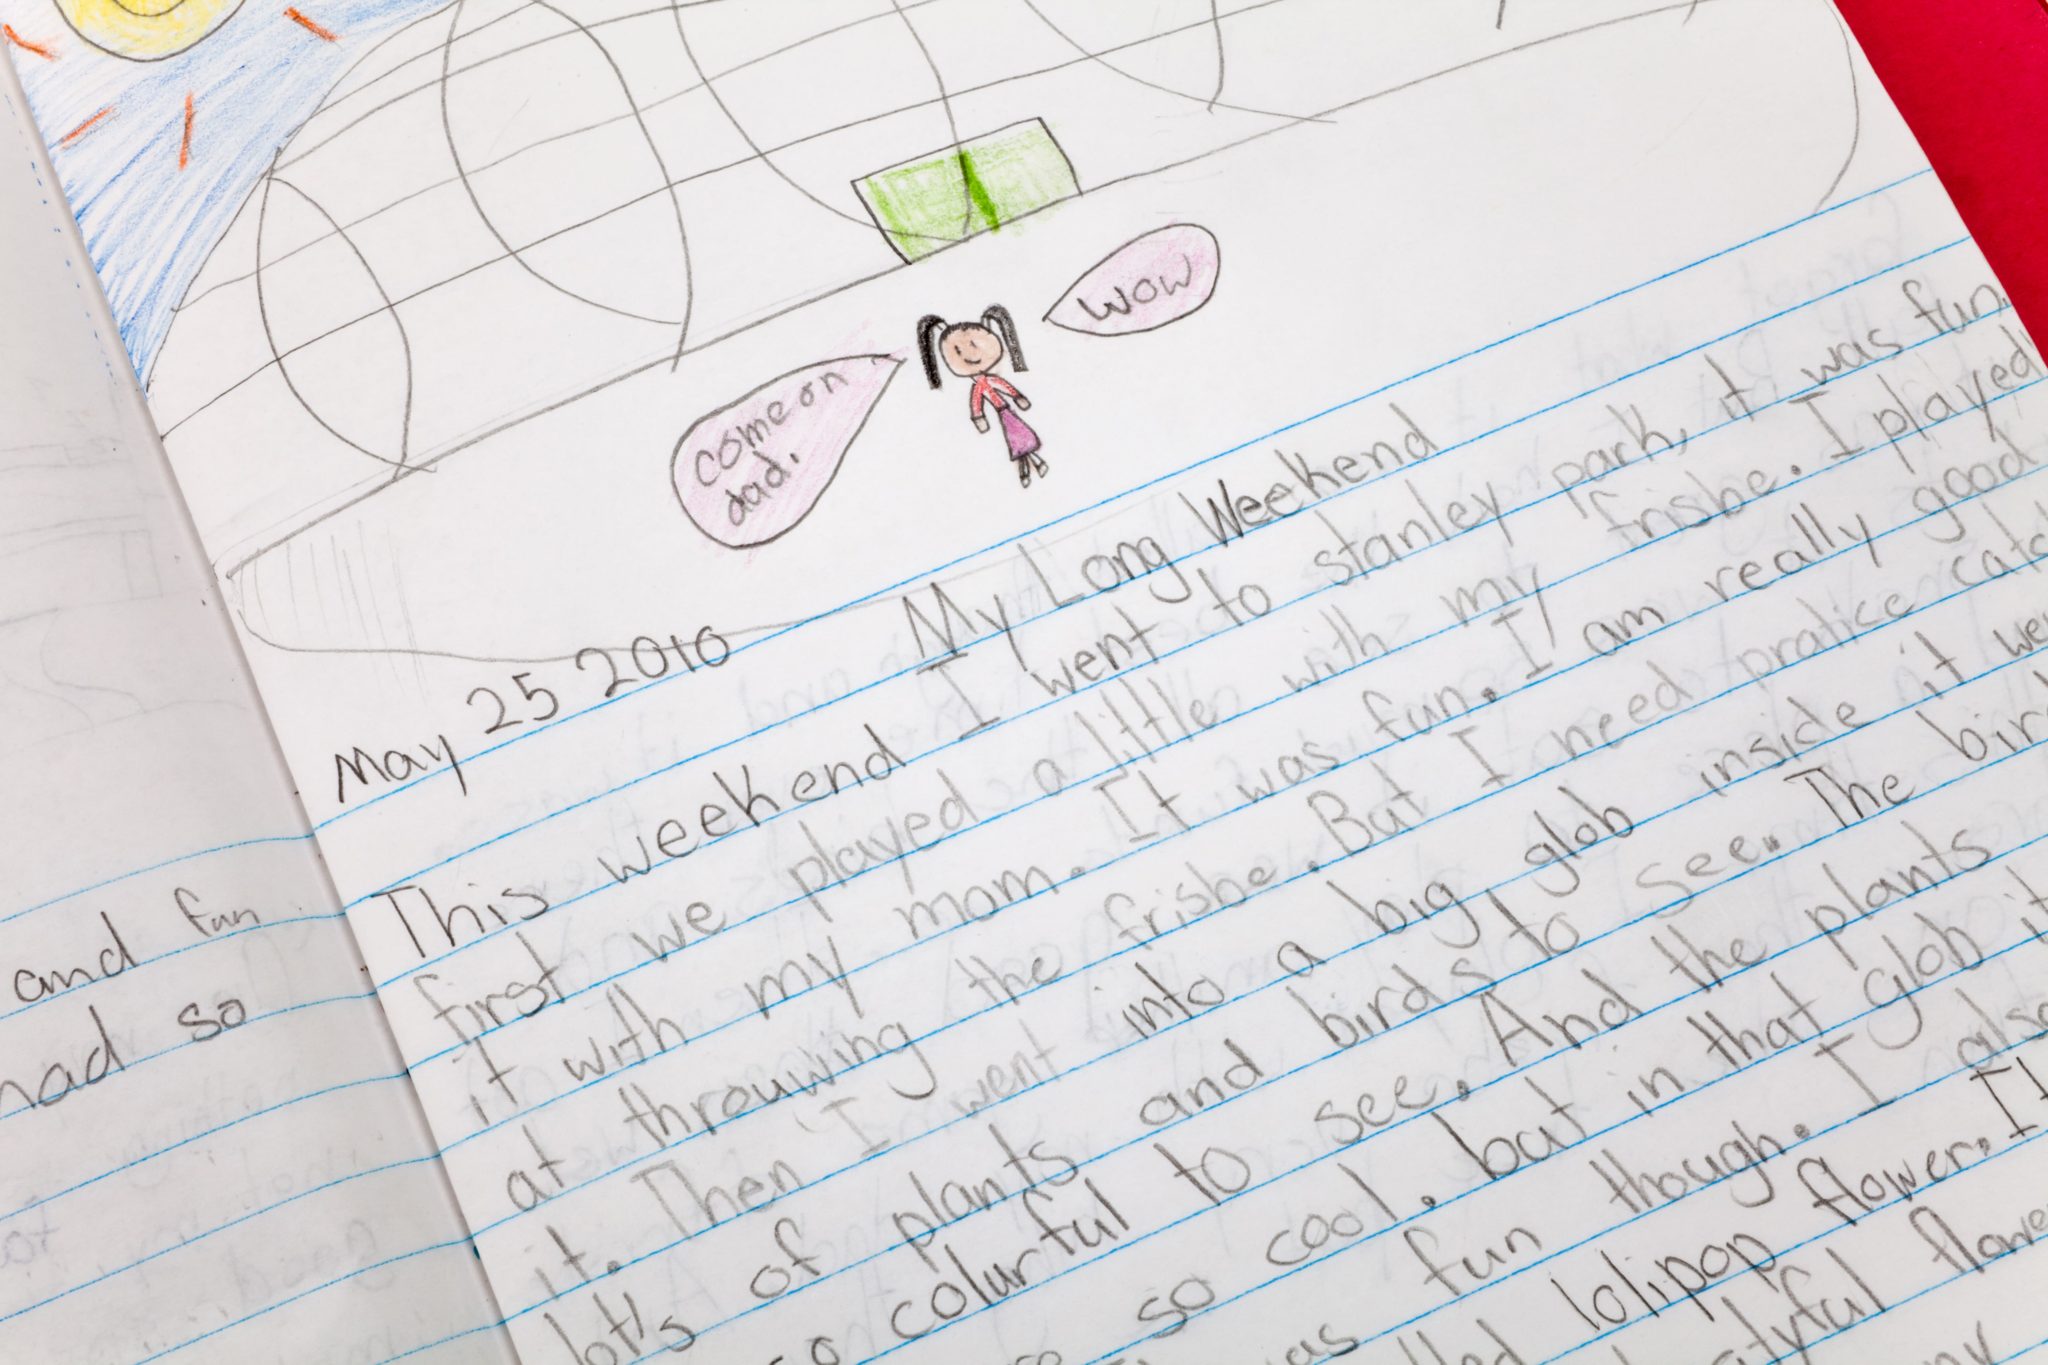 wow
come on
dad.
May 25 2010 My Long Weekend
This weekend I went to stanley park, it was fun.
first we played a little with my frisbe. I played
it with my mom. It was fun. I am really good
at throuwing the frisbe. But I need pratice
it. Then I went into a big glob inside it
lot's of plants and birds to see. The
colurful to see. And the plants
so cool. but in that glob it
fun though. I also
lolipop flower. It
and fun
so